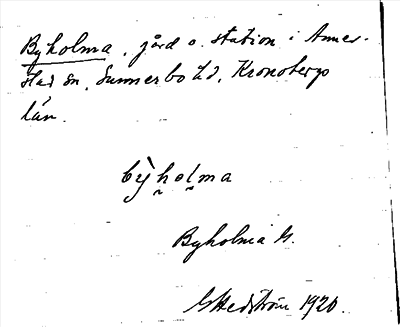 Byholma, gård o. station i Anner-
stad sn, Sunnerbo hd, Kronobergs
län.
bỳholma
Byholma G.
G Hedström 1920.